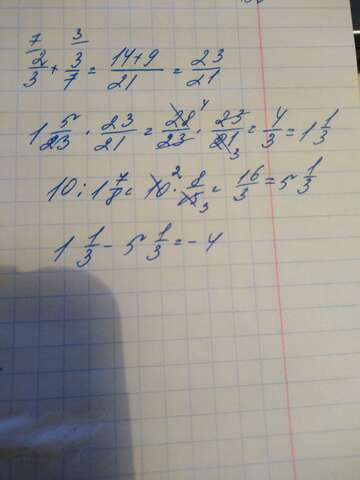 7/ 2/3 + 3/ 3/7 = (14+9)/21 = 23/21
1 5/23 · 23/21 = 28/23 4 · 23/21 3 = 4/3 = 1 1/3
10 : 1 7/8 = 10 2 · 8/15 3 = 16/3 = 5 1/3
1 1/3 - 5 1/3 = -4